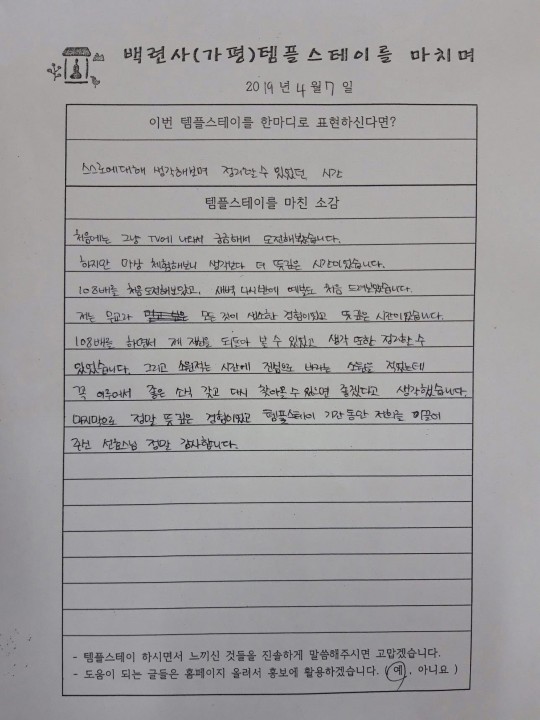 백련사(가평)템플스테이를 마치며
2019년 4월 7일
이번 템플스테이를 한마디로 표현하신다면?
스스로에대해 생각해보며 정리할수 있었던 시간
템플스테이를 마친 소감
처음에는 그냥 TV에 나와서 궁금해서 도전해봤습니다.
하지만 막상 체험해보니 생각보다 더 뜻깊은 시간이었습니다.
108배는 처음 도전해보았고, 새벽 다시 예불도 처음 드려보았습니다.
저는 무교라 모든 것이 생소한 경험이었고 뜻 깊은 시간이었습니다.
108배를 하면서 제 자신을 되돌아 볼 수 있었고 생각 또한 정리할 수
있었습니다. 그리고 소원적는 시간에 진심으로 바라는 소원을 적었는데
꼭 이루어져서 좋은 소식 갖고 다시 찾아올 수 있으면 좋겠다고 생각했습니다.
마지막으로 정말 뜻 깊은 경험이었고 템플스테이 기간 동안 저희를 이끌어
주신 스님 정말 감사합니다.
- 템플스테이 하시면서 느끼신 것들을 진솔하게 말씀해주시면 고맙겠습니다.
- 도움이 되는 글들은 홈페이지 올려서 홍보에 활용하겠습니다. ( 예, 아니요 )